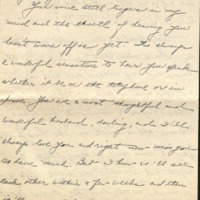 Your voice still lingers in my
mind and the thrill of hearing you
hasn't worn off as yet. It's always
a wonderful sensation to hear you speak
whether it be on the telephone or in
person. You are a most thoughtful and
wonderful husband, darling, and I'll
always love you and regret miss you
so very much. But I know we'll see
each other within a few weeks and then